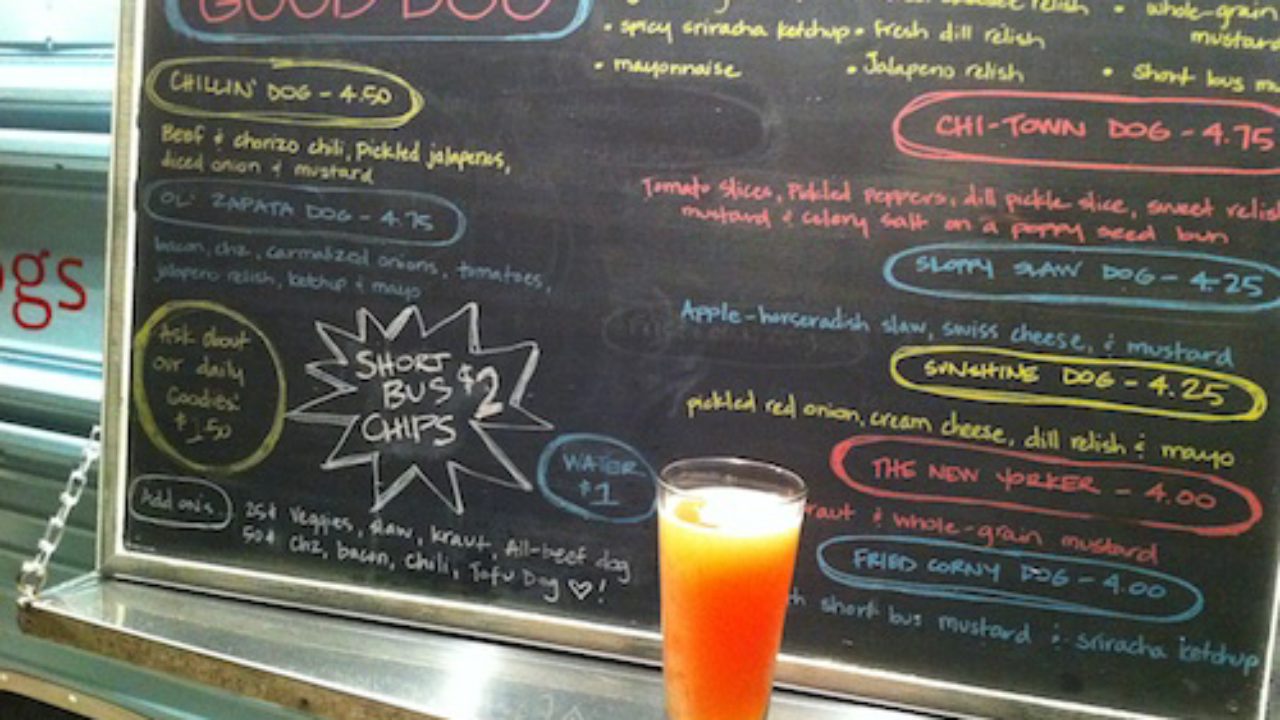 GOOD DOG
relish
• whole-grain
• spicy sriracha ketchup • Fresh dill relish
mustard
• mayonnaise • Jalapeno relish • Short bus
CHILLIN' DOG - 4.50
Beef & chorizo chili, Pickled jalapenos,
diced onion & mustard
OL' ZAPATA DOG - 4.75
bacon, chz, carmalized onions, tomatoes,
jalapeno relish, ketchup & mayo
Ask about
our daily
Goodies!
$1.50
SHORT
BUS $2
CHIPS
WATER
$1
Add on's
25¢ Veggies, slaw, kraut, All-beef dog
50¢ chz, bacon, chili, Tofu Dog ♡!
CHI-TOWN DOG - 4.75
Tomato slices, Pickled Peppers, dill pickle slice, sweet relish
mustard & celery salt on a poppy seed bun
SLOPPY SLAW DOG - 4.25
Apple-horseradish slaw, swiss cheese, & mustard
SUNSHINE DOG - 4.25
pickled red onion, cream cheese, dill relish & mayo
THE NEW YORKER - 4.00
raut & whole-grain mustard
FRIED CORNY DOG - 4.00
th short bus mustard & sriracha ketchup
ogs